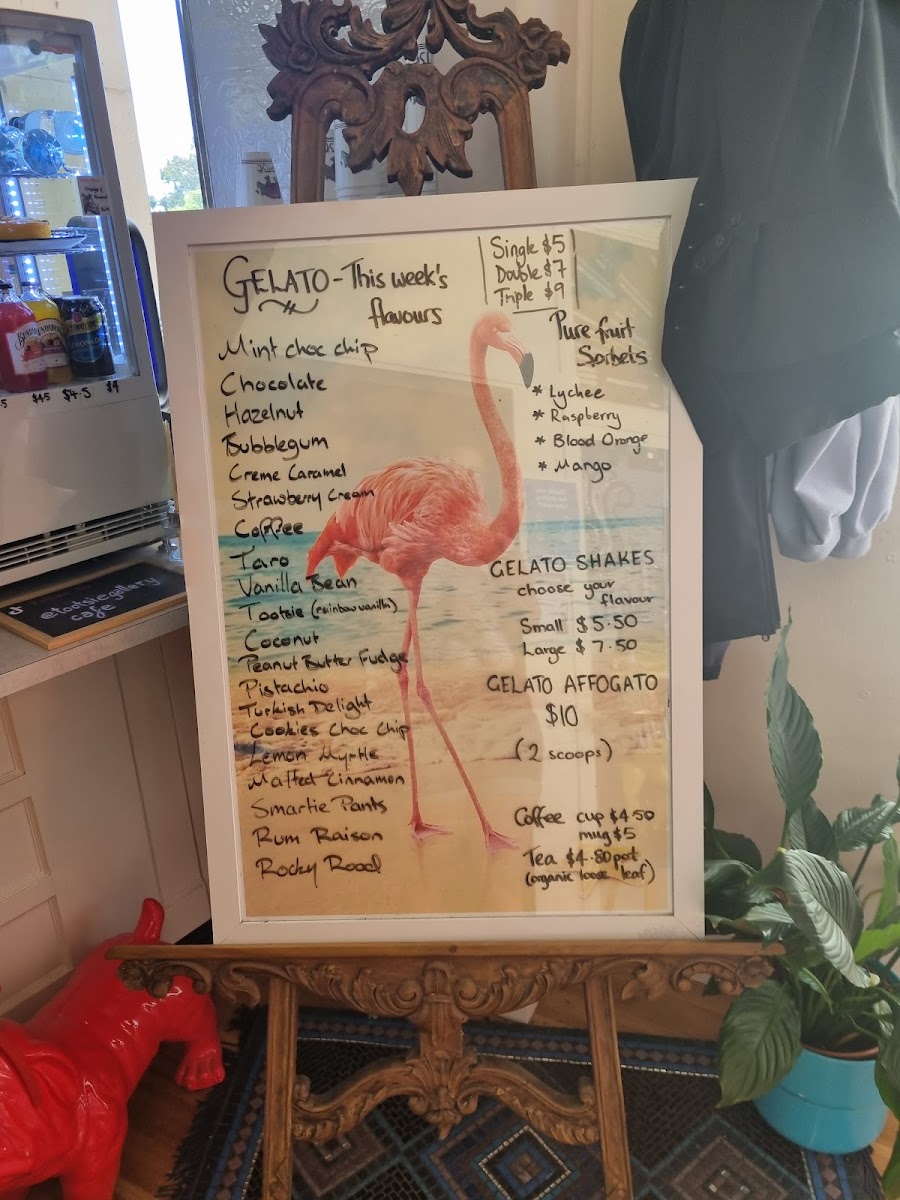 GELATO - This week's
flavours
Single $5
Double $7
Triple $9
Mint choc chip
Chocolate
Hazelnut
Bubblegum
Creme Caramel
Strawberry Cream
Coffee
Taro
Vanilla Bean
Tootsie (rainbow vanilla)
Coconut
Peanut Butter Fudge
Pistachio
Turkish Delight
Cookies Choc Chip
Lemon Myrtle
Malted Cinnamon
Smartie Pants
Rum Raison
Rocky Road
Pure fruit
Sorbets
* Lychee
* Raspberry
* Blood Orange
* Mango
GELATO SHAKES
choose your
flavour
Small $5.50
Large $7.50
GELATO AFFOGATO
$10
(2 scoops)
Coffee cup $4.50
mug $5
Tea $4.80 pot
(organic loose leaf)
$4.5 $4.5 $4
@tootsiegallery
cafe